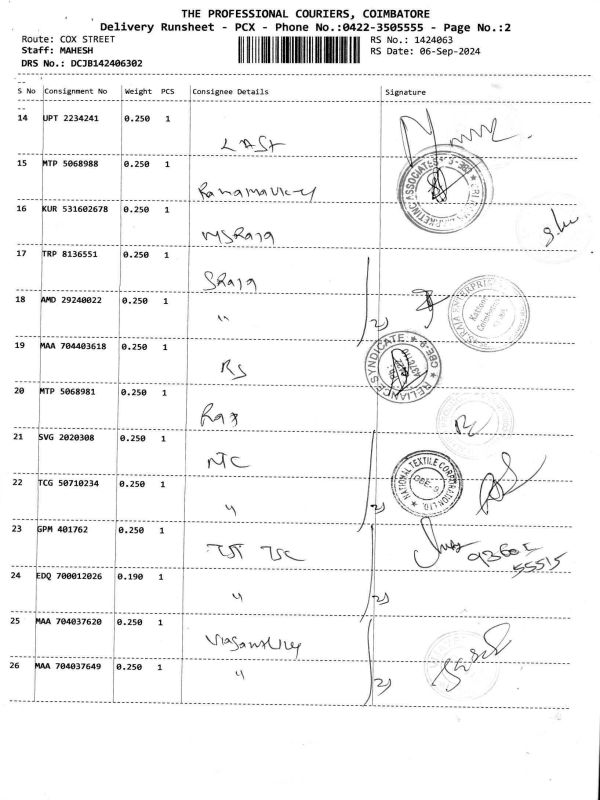 THE PROFESSIONAL COURIERS, COIMBATORE
Delivery Runsheet - PCX - Phone No.:0422-3505555 - Page No.:2
Route: COX STREET
RS No.: 1424063
Staff: MAHESH
RS Date: 06-Sep-2024
DRS No.: DCJB142406302
S No Consignment No Weight PCS Consignee Details Signature
14 UPT 2234241 0.250 1
LAST
15 MTP 5068988 0.250 1
16 KUR 531602678 0.250 1
MSRAJA
17 TRP 8136551 0.250 1
SRAJA
18 AMD 29240022 0.250 1
"
2)
19 MAA 704403618 0.250 1
RS
RELIANCE SYNDICATE CBE-9
20 MTP 5068981 0.250 1
21 SVG 2020308 0.250 1
NTC
22 TCG 50710234 0.250 1
"
2)
NATIONAL TEXTILE CORPORATION LTD. CBE-9
23 GPM 401762 0.250 1
24 EDQ 700012026 0.190 1
"
2)
25 MAA 704037620 0.250 1
26 MAA 704037649 0.250 1
"
2)